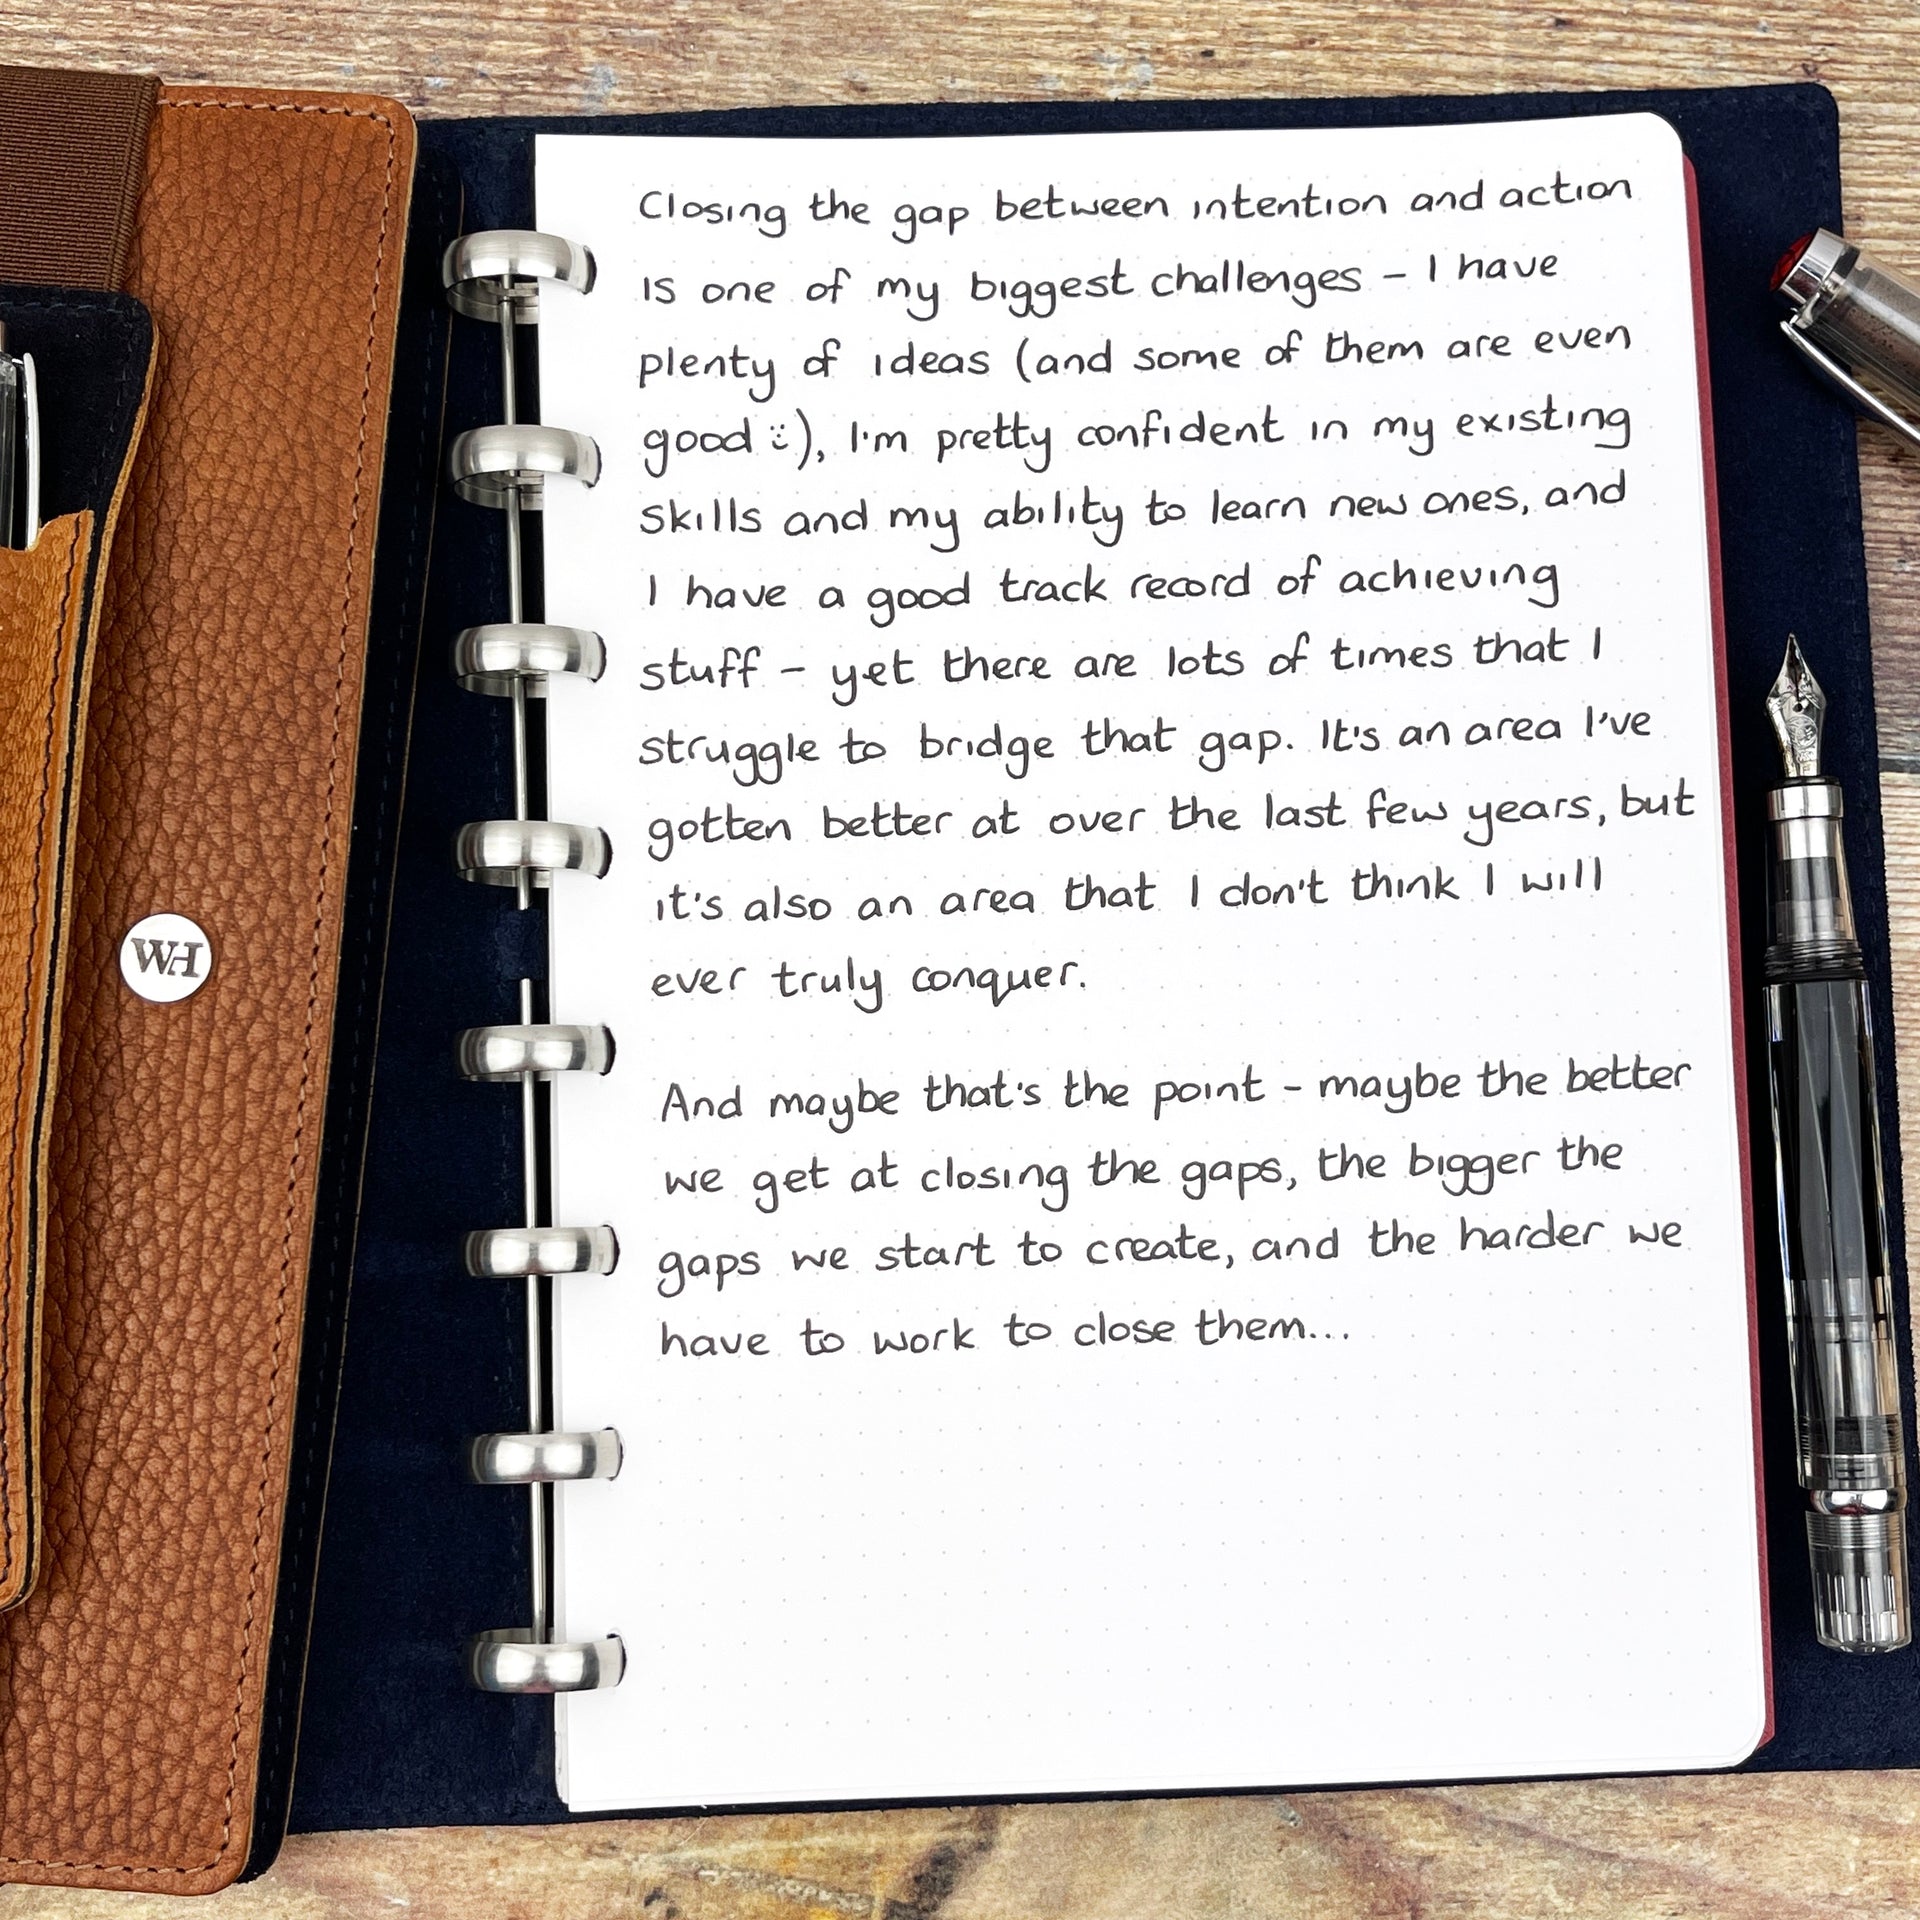 Closing the gap between intention and action
is one of my biggest challenges – I have
plenty of ideas (and some of them are even
good :)), I'm pretty confident in my existing
skills and my ability to learn new ones, and
I have a good track record of achieving
stuff – yet there are lots of times that I
struggle to bridge that gap. It's an area I've
gotten better at over the last few years, but
it's also an area that I don't think I will
ever truly conquer.
And maybe that's the point – maybe the better
we get at closing the gaps, the bigger the
gaps we start to create, and the harder we
have to work to close them...
WH